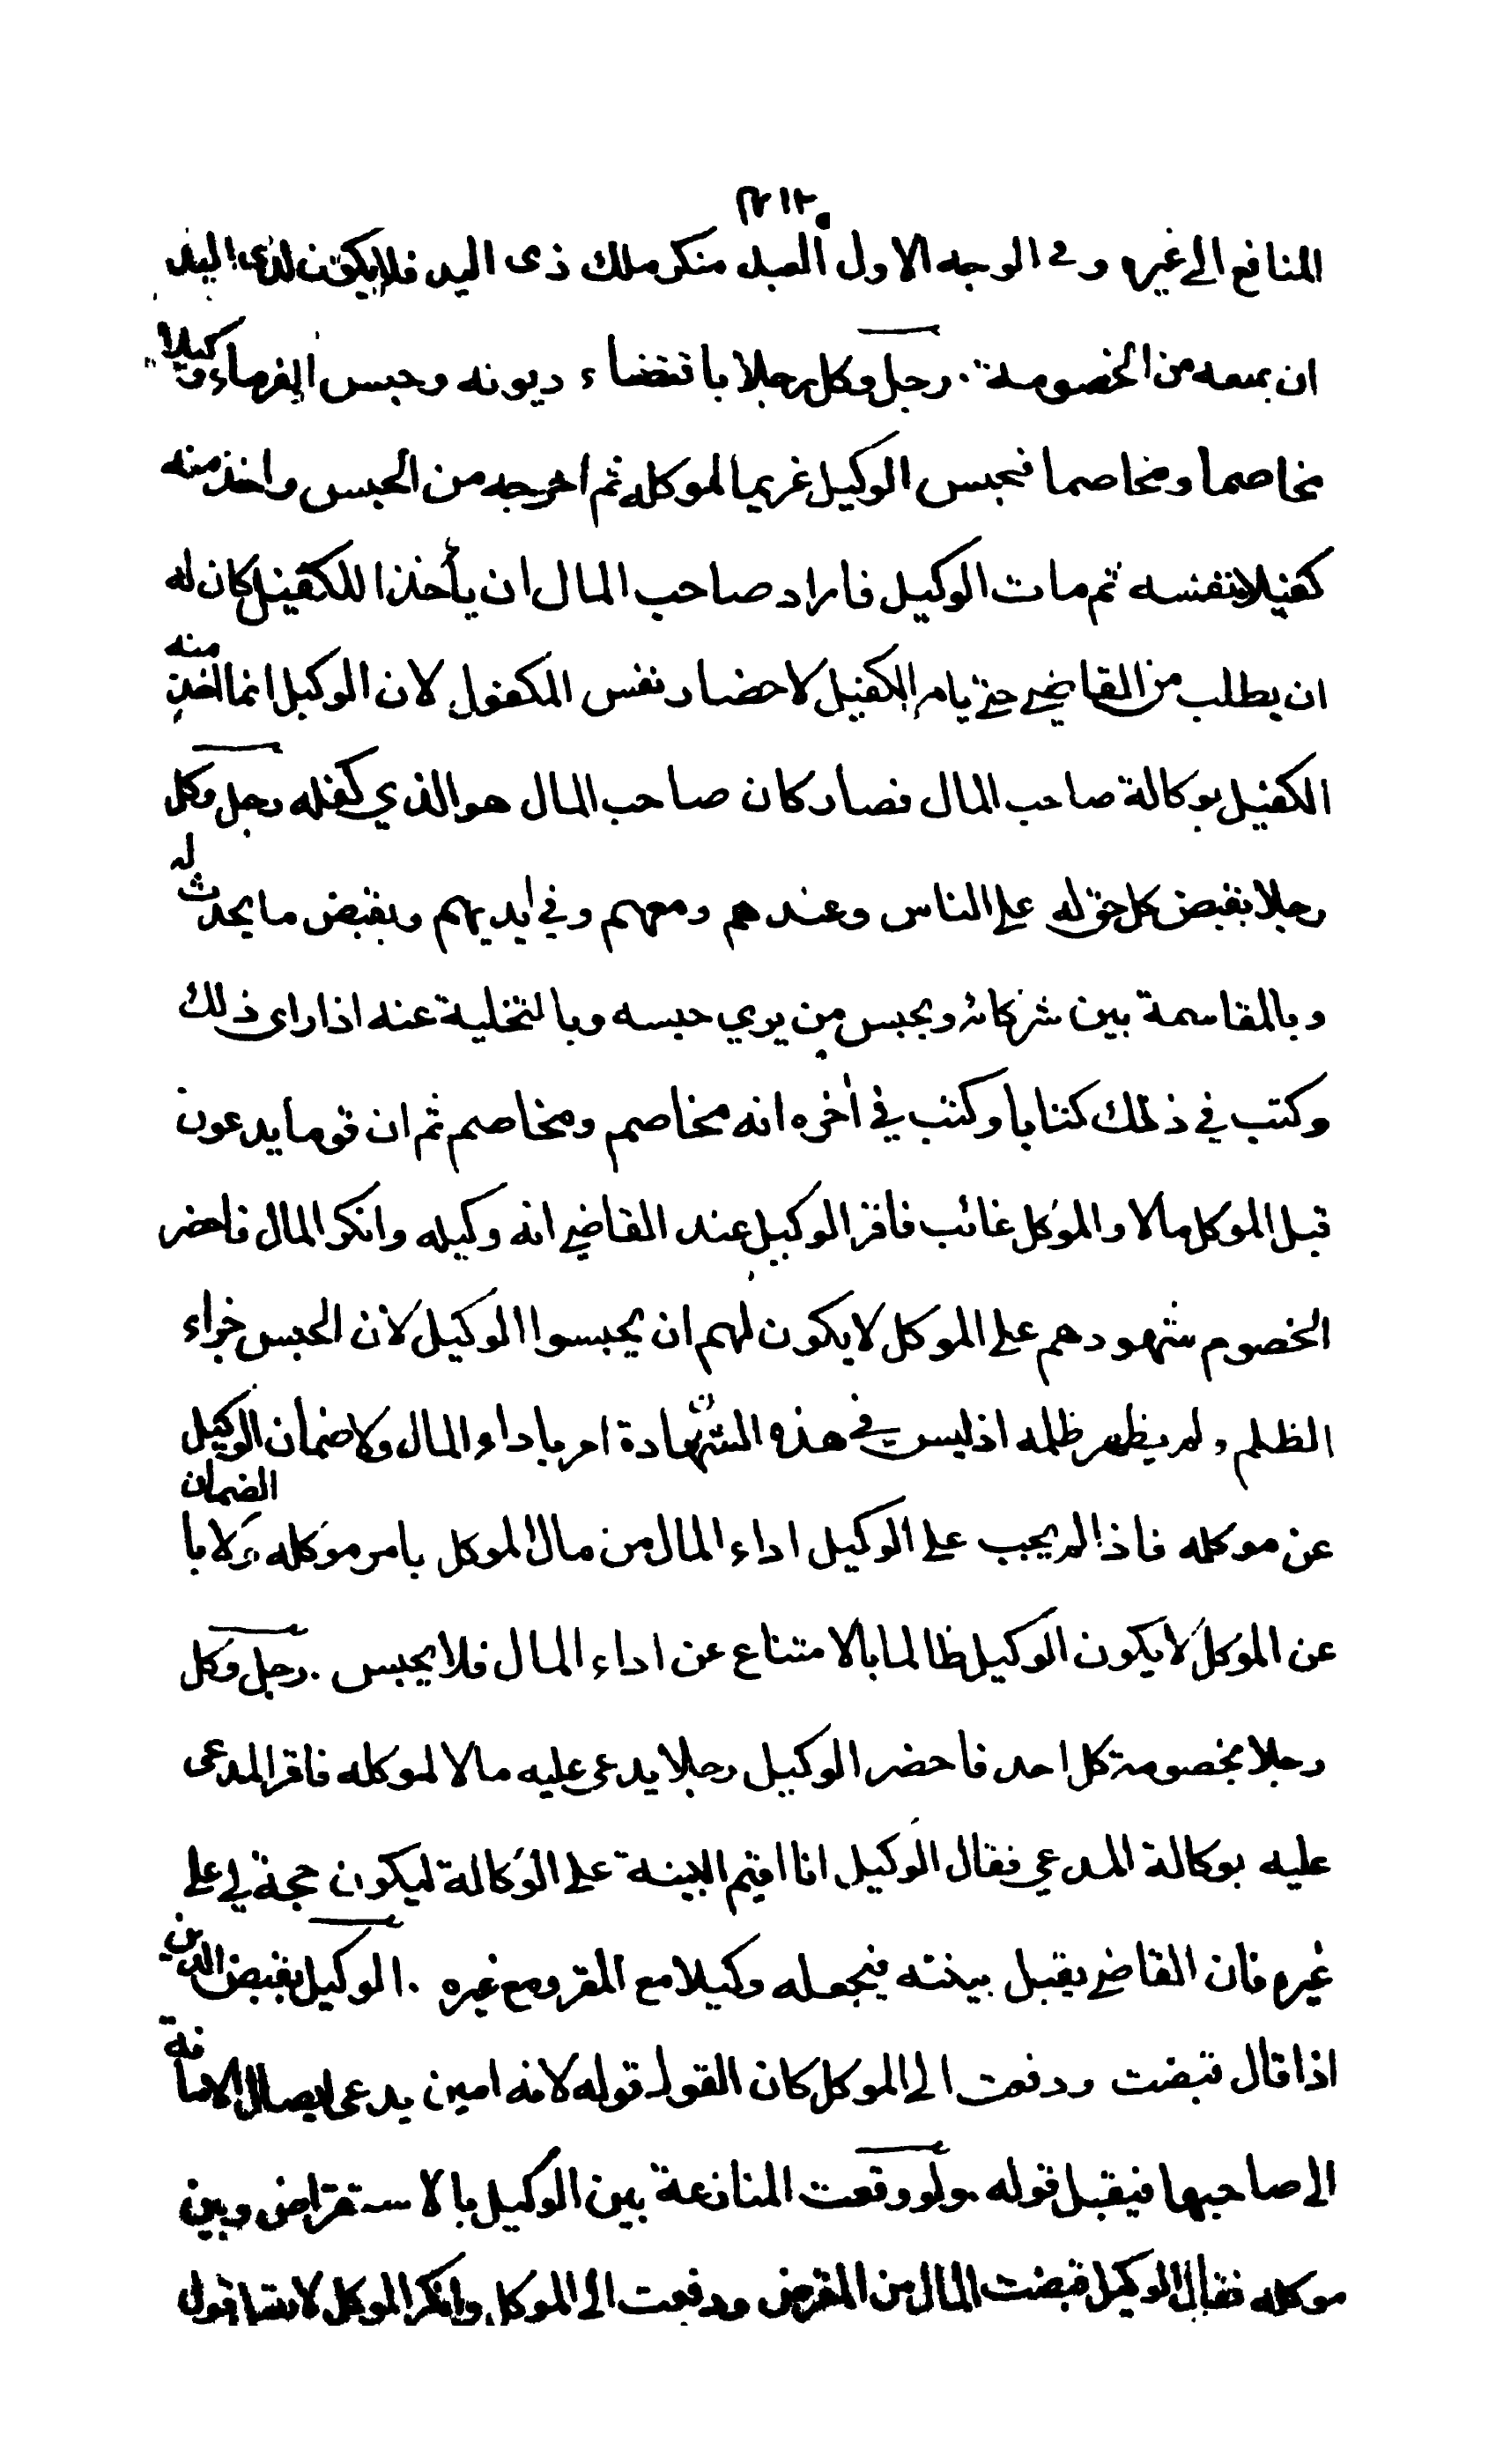 المنافع الى غيره وفى الوجه الاول العبد منكر ملك ذى اليد فلا يكون لذى اليد
ان يمنعه من الخصومة . رجل وكل رجلا باقتضاء ديونه وحبس الغرماء وكيلا
مخاصما ومخاصما فحبس الوكيل غريما لموكله ثم اخرجه من الحبس واخذ منه
كفيلا بنفسه ثم مات الوكيل فاراد صاحب المال ان يأخذ الكفيل كان له
ان يطلب من القاضي حتى يامر الكفيل لاحضار نفس المكفول لان الوكيل انما اخذ منه
الكفيل بوكالة صاحب المال فصار كان صاحب المال هو الذي كفله رجل وكل
رجلا بقبض كل حق له على الناس وعندهم ومعهم وفي ايديهم وبقبض ما يحدث له
وبالمقاسمة بين شركائه وبحبس من يري حبسه وبالتخلية عنه اذا راى ذلك
وكتب في ذلك كتابا وكتب في أخره انه مخاصم ومخاصم ثم ان قوما يدعون
قبل الموكل مالا والموكل غائب فاقر الوكيل عند القاضي انه وكيله وانكر المال فاحضر
الخصوم شهودهم على الموكل لا يكون لهم ان يحبسوا الوكيل لان الحبس جزاء
الظلم ولم يظهر ظلمه اذ ليس في هذه الشهادة امر باداء المال ولا ضمان الوكيل
عن موكله فاذا لم يجب على الوكيل اداء المال من مال الموكل بامر موكله ولا با الضمان
عن الموكل لا يكون الوكيل ظالما بالامتناع عن اداء المال فلا يحبس . رجل وكل
رجلا بخصومة كل احد فاحضر الوكيل رجلا يدعى عليه مالا لموكله فاقر المدعى
عليه بوكالة المدعي فقال الوكيل انا اقيم البينة على الوكالة ليكون حجة لي على
غيره فان القاضي يقبل بينته فيجعله وكيلا مع المقر ومع غيره . الوكيل بقبض الدين
اذا قال قبضت ودفعت الى الموكل كان القول قوله لانه امين يدعى ايصال الامانة
الى صاحبها فيقبل قوله . ولو وقعت المنازعة بين الوكيل بالاستقراض وبين
موكله فقال الوكيل قبضت المال من المقرض ودفعت الى الموكل وانكر الموكل لا